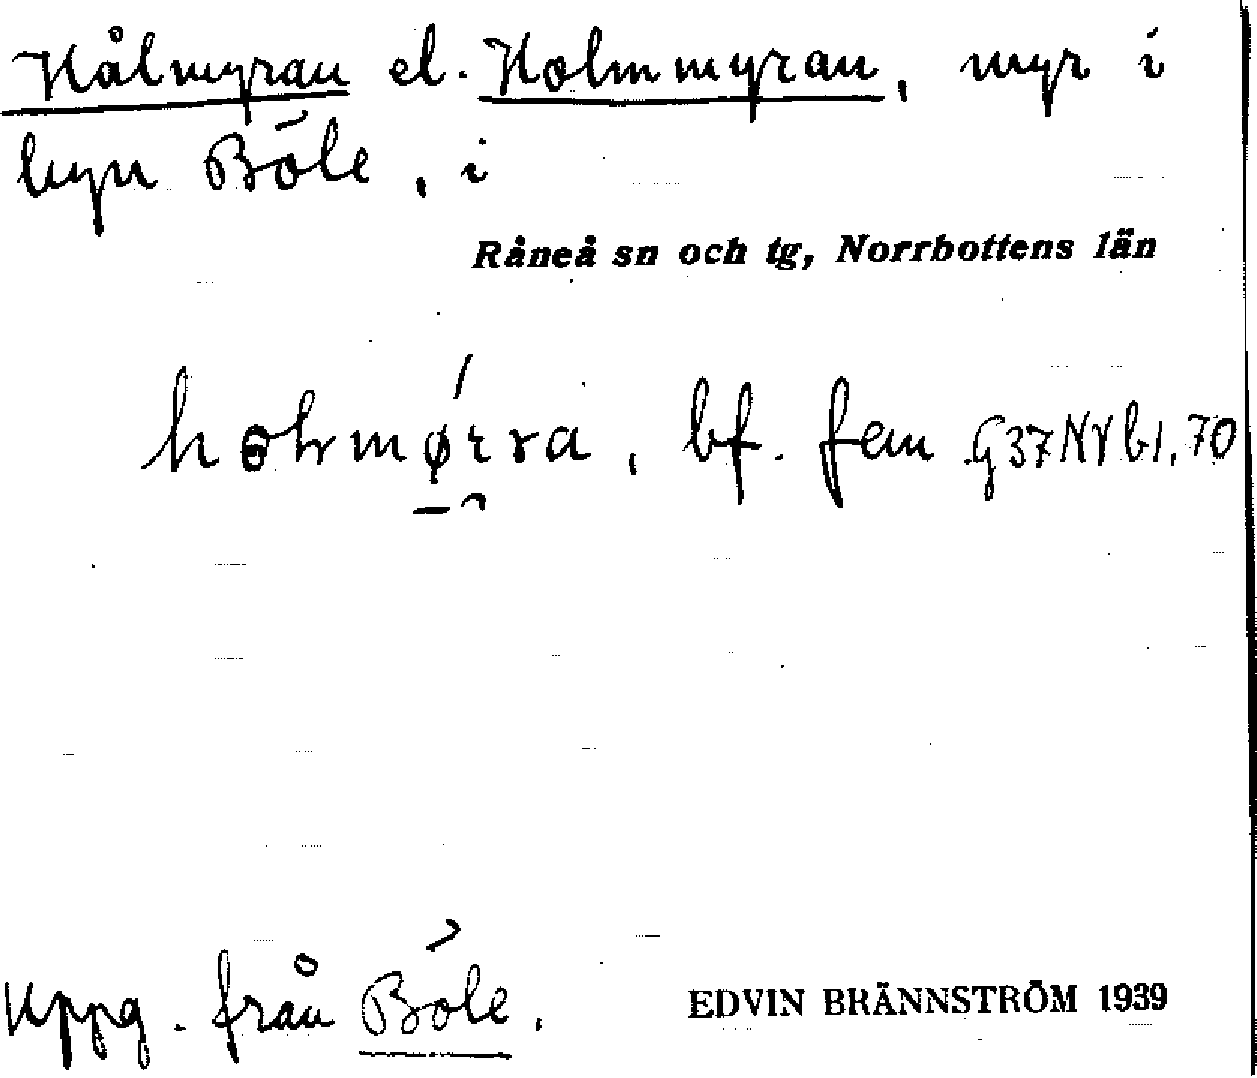 Hålmyran el. Holmmyran, myr i
byn Böle, i
Råneå sn och tg, Norrbottens län
bf. fem G37NVb1.70
Uppg. från Böle.
EDVIN BRÄNNSTRÖM 1939